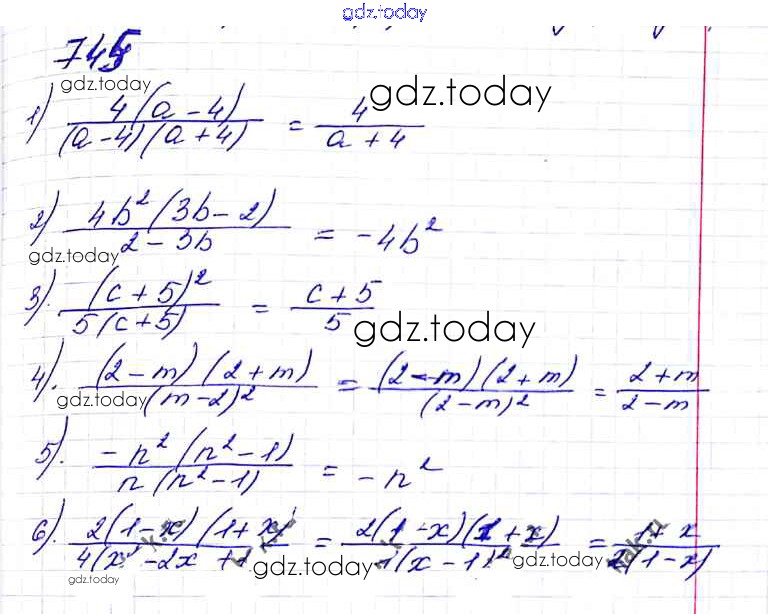 gdz.today
745
gdz.today
1) 4(a-4) / (a-4)(a+4) = 4 / a+4
gdz.today
2) 4b²(3b-2) / 2-3b = -4b²
gdz.today
3). (c+5)² / 5(c+5) = c+5 / 5
gdz.today
4). (2-m)(2+m) / (m-2)² = (2-m)(2+m) / (2-m)² = 2+m / 2-m
gdz.today
5). -n²(n²-1) / n(n²-1) = -n²
6). 2(1-x)(1+x) / 4(x²-2x+1 = 2(1-x)(1+x) / (x-1)² = 1+x / 2(1-x)
gdz.today
gdz.today